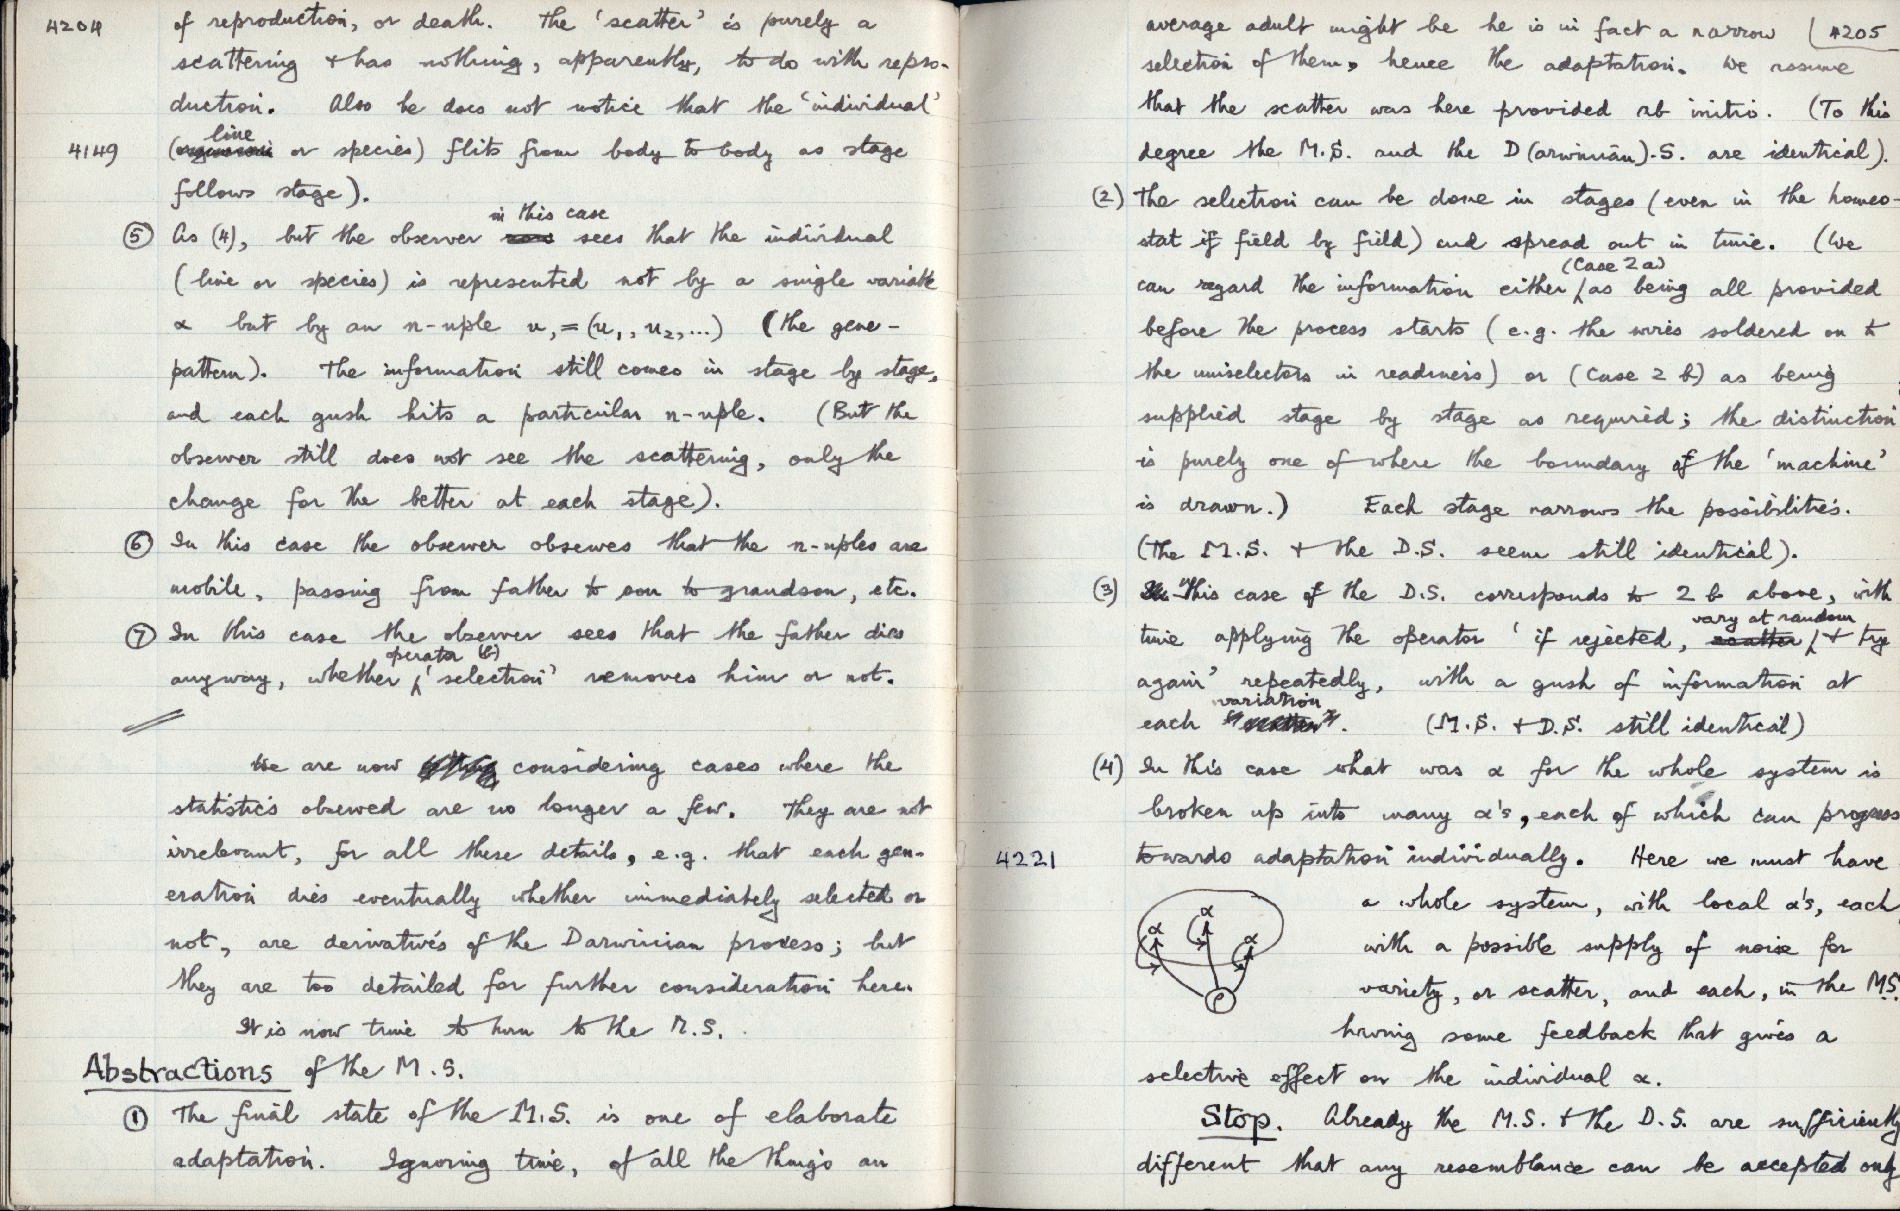 4204
of reproduction, or death. The 'scatter' is purely a
scattering + has nothing, apparently, to do with repro-
duction. Also he does not notice that the 'individual'
4149
line
( or species) flits from body to body as stage
follows stage).
in this case
⑤ As (4), but the observer sees that the individual
(line or species) is represented not by a single variable
α but by an n-uple u, = (u₁, u₂, ...) (the gene-
pattern). The information still comes in stage by stage,
and each gush hits a particular n-uple. (But the
observer still does not see the scattering, only the
change for the better at each stage).
⑥ In this case the observer observes that the n-uples are
mobile, passing from father to son to grandson, etc.
⑦ In this case the observer sees that the father dies
operator (b)
anyway, whether 'selection' removes him or not.
We are now considering cases where the
statistics observed are no longer a few. They are not
irrelevant, for all these details, e.g. that each gen-
eration dies eventually whether immediately selected or
not, are derivatives of the Darwinian process; but
they are too detailed for further consideration here.
It is now time to turn to the M.S.
Abstractions of the M.S.
① The final state of the M.S. is one of elaborate
adaptation. Ignoring time, of all the things an
4205
average adult might be he is in fact a narrow
selection of them, hence the adaptation. We assume
that the scatter was here provided ab initio. (To this
degree the M.S. and the D(arwinian).S. are identical).
(2) The selection can be done in stages (even in the homeo-
stat if field by field) and spread out in time. (We
(Case 2a)
can regard the information either as being all provided
before the process starts (e.g. the wires soldered on to
the uniselectors in readiness) or (Case 2 b) as being
supplied stage by stage as required; the distinction
is purely one of where the boundary of the 'machine'
is drawn.) Each stage narrows the possibilities.
(The M.S. + the D.S. seem still identical).
(3) This case of the D.S. corresponds to 2 b above, with
vary at random
time applying the operator 'if rejected, scatter, + try
again' repeatedly, with a gush of information at
variation
each "scatter". (M.S. + D.S. still identical)
(4) In this case what was α for the whole system is
broken up into many α's, each of which can progress
4221
towards adaptation individually. Here we must have
a whole system, with local α's, each
with a possible supply of noise for
variety, or scatter, and each, in the M.S.
having some feedback that gives a
selective effect on the individual α.
α
α
α
Stop. Already the M.S. + the D.S. are sufficiently
different that any resemblance can be accepted only